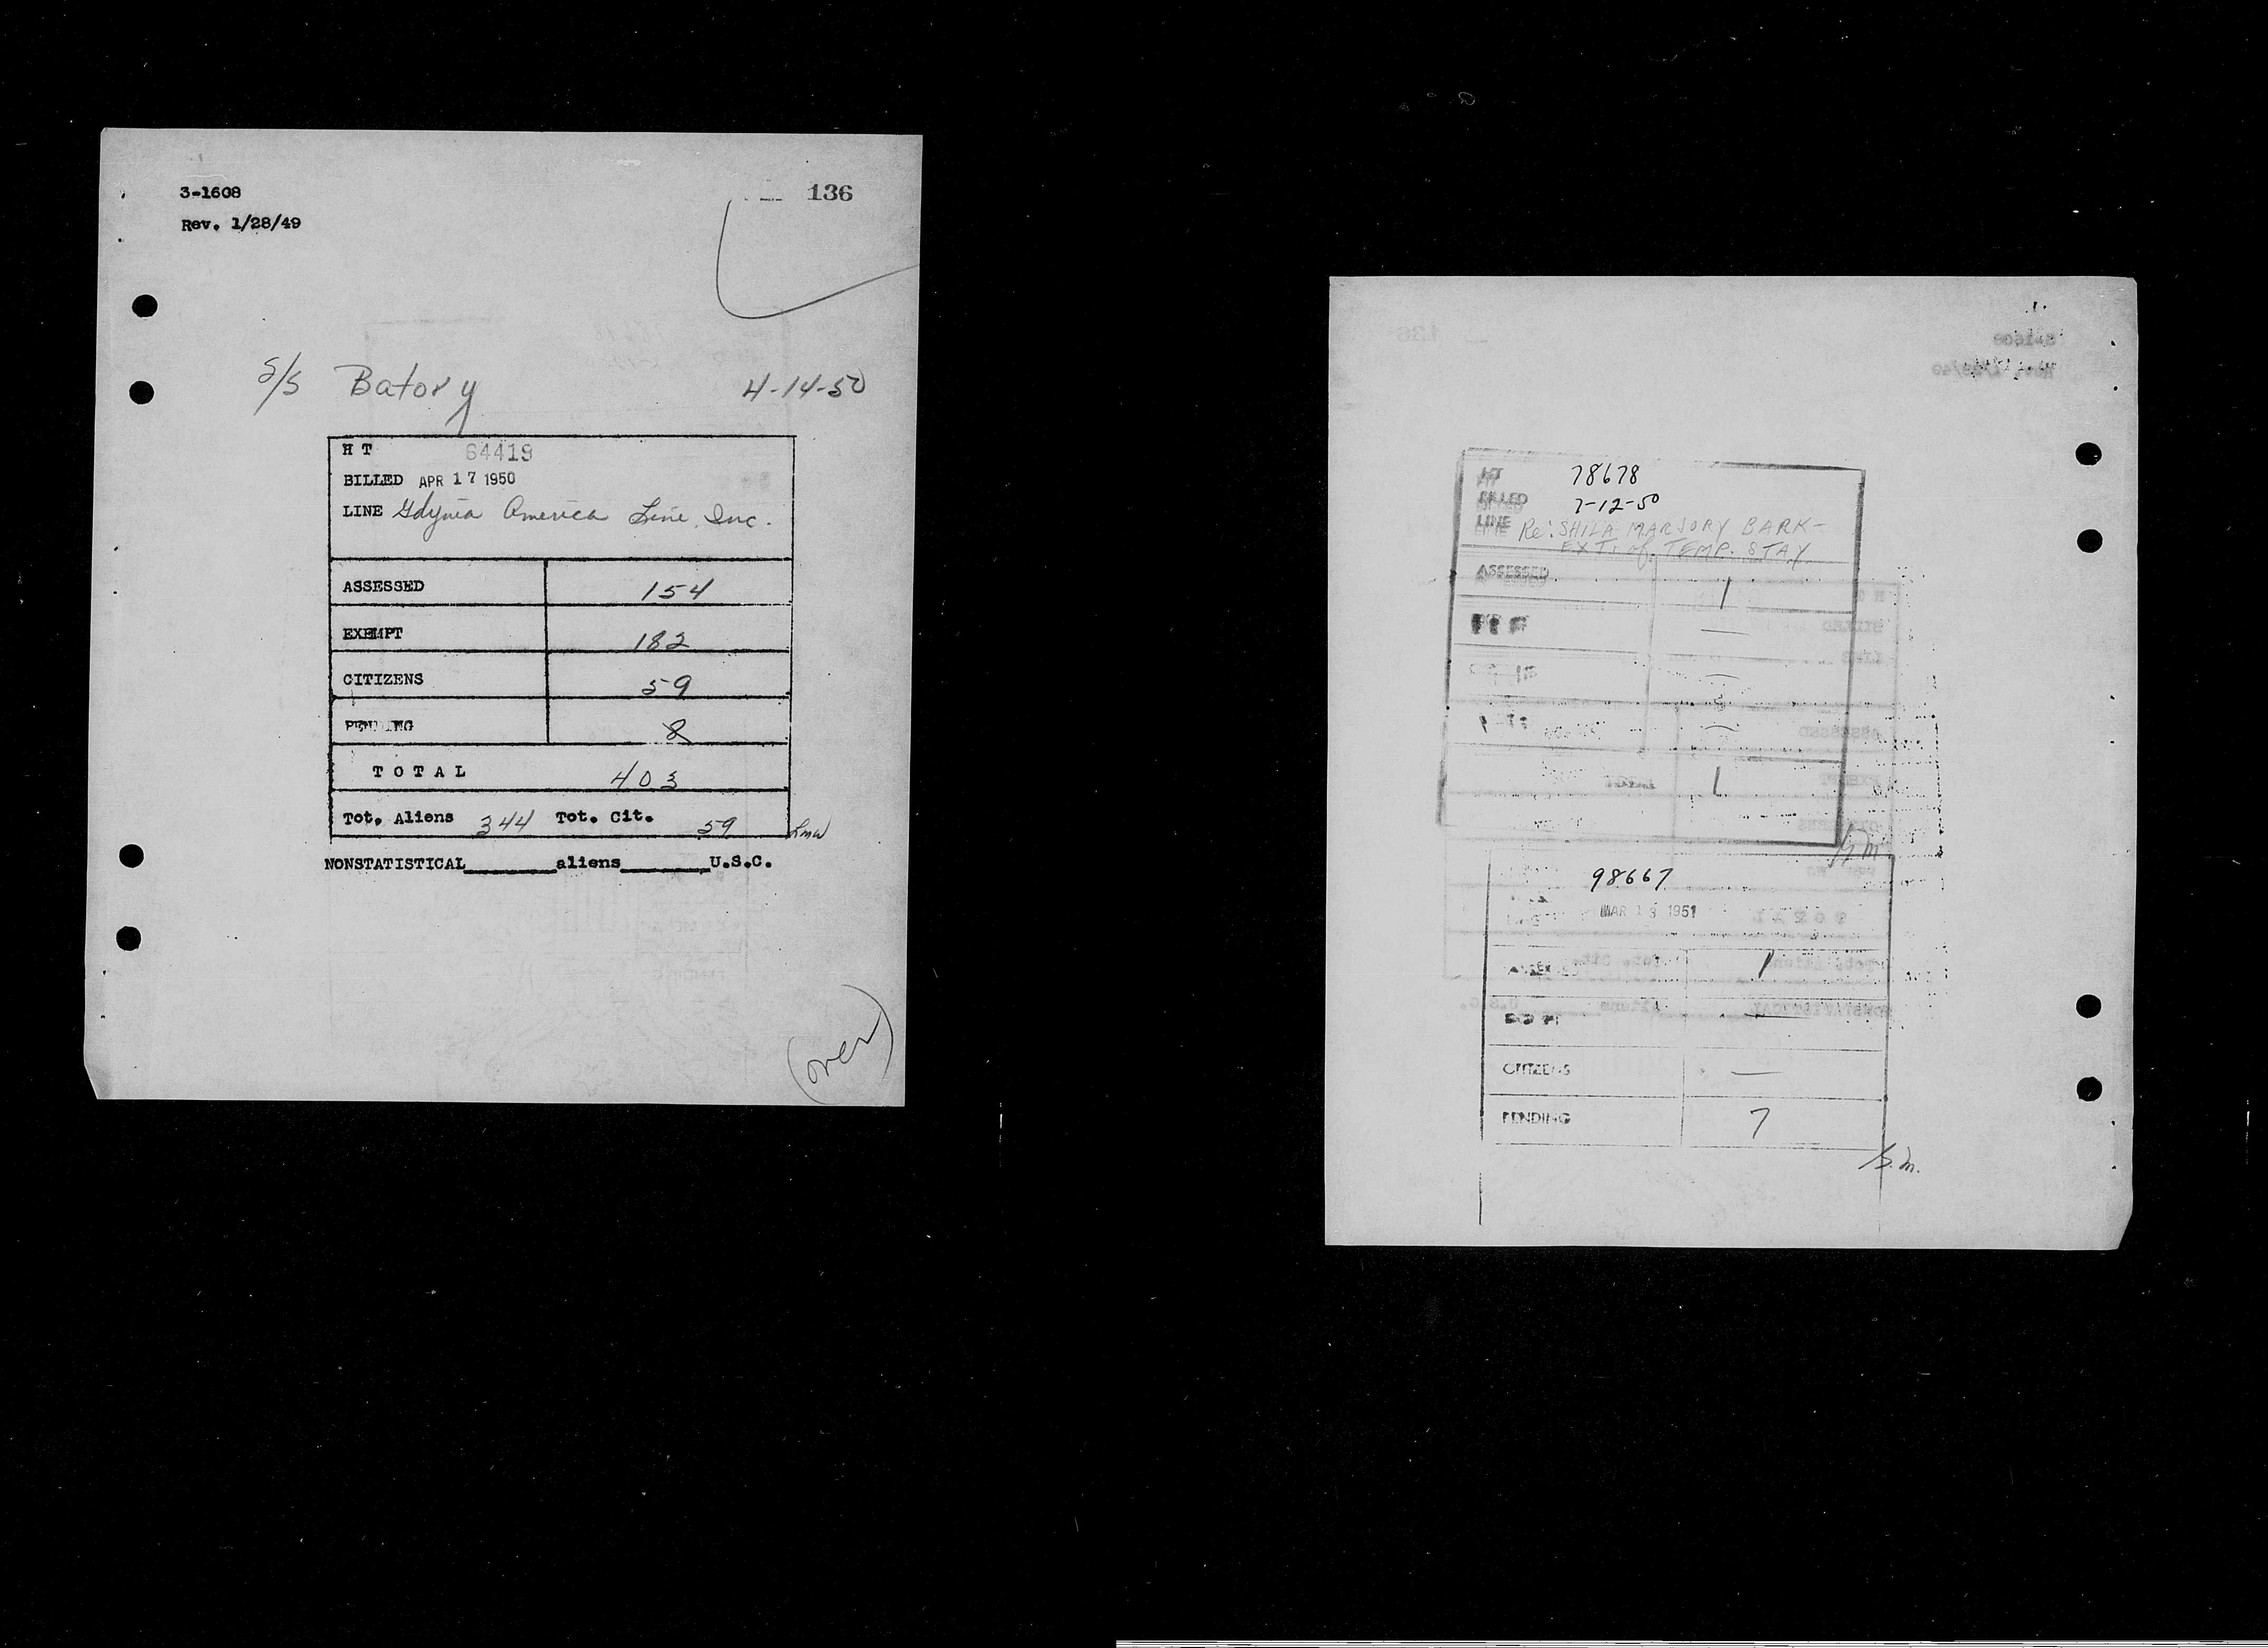 3-1608
Rev. 1/28/49
136
S/S Batory 4-14-50
H T 64419
BILLED APR 17 1950
LINE Gdynia America Line, Inc.
ASSESSED 154
EXEMPT 182
CITIZENS 59
PENDING 8
TOTAL 403
Tot. Aliens 344 Tot. Cit. 59
NONSTATISTICAL aliens U.S.C.
(over)
HT 78678
BILLED 7-12-50
LINE Re: SHILA MARJORY BARK-
EXT. of TEMP. STAY
ASSESSED 1
—
—
—
1
98667
MAR 1951
1
—
CITIZENS —
PENDING 7
S.M.